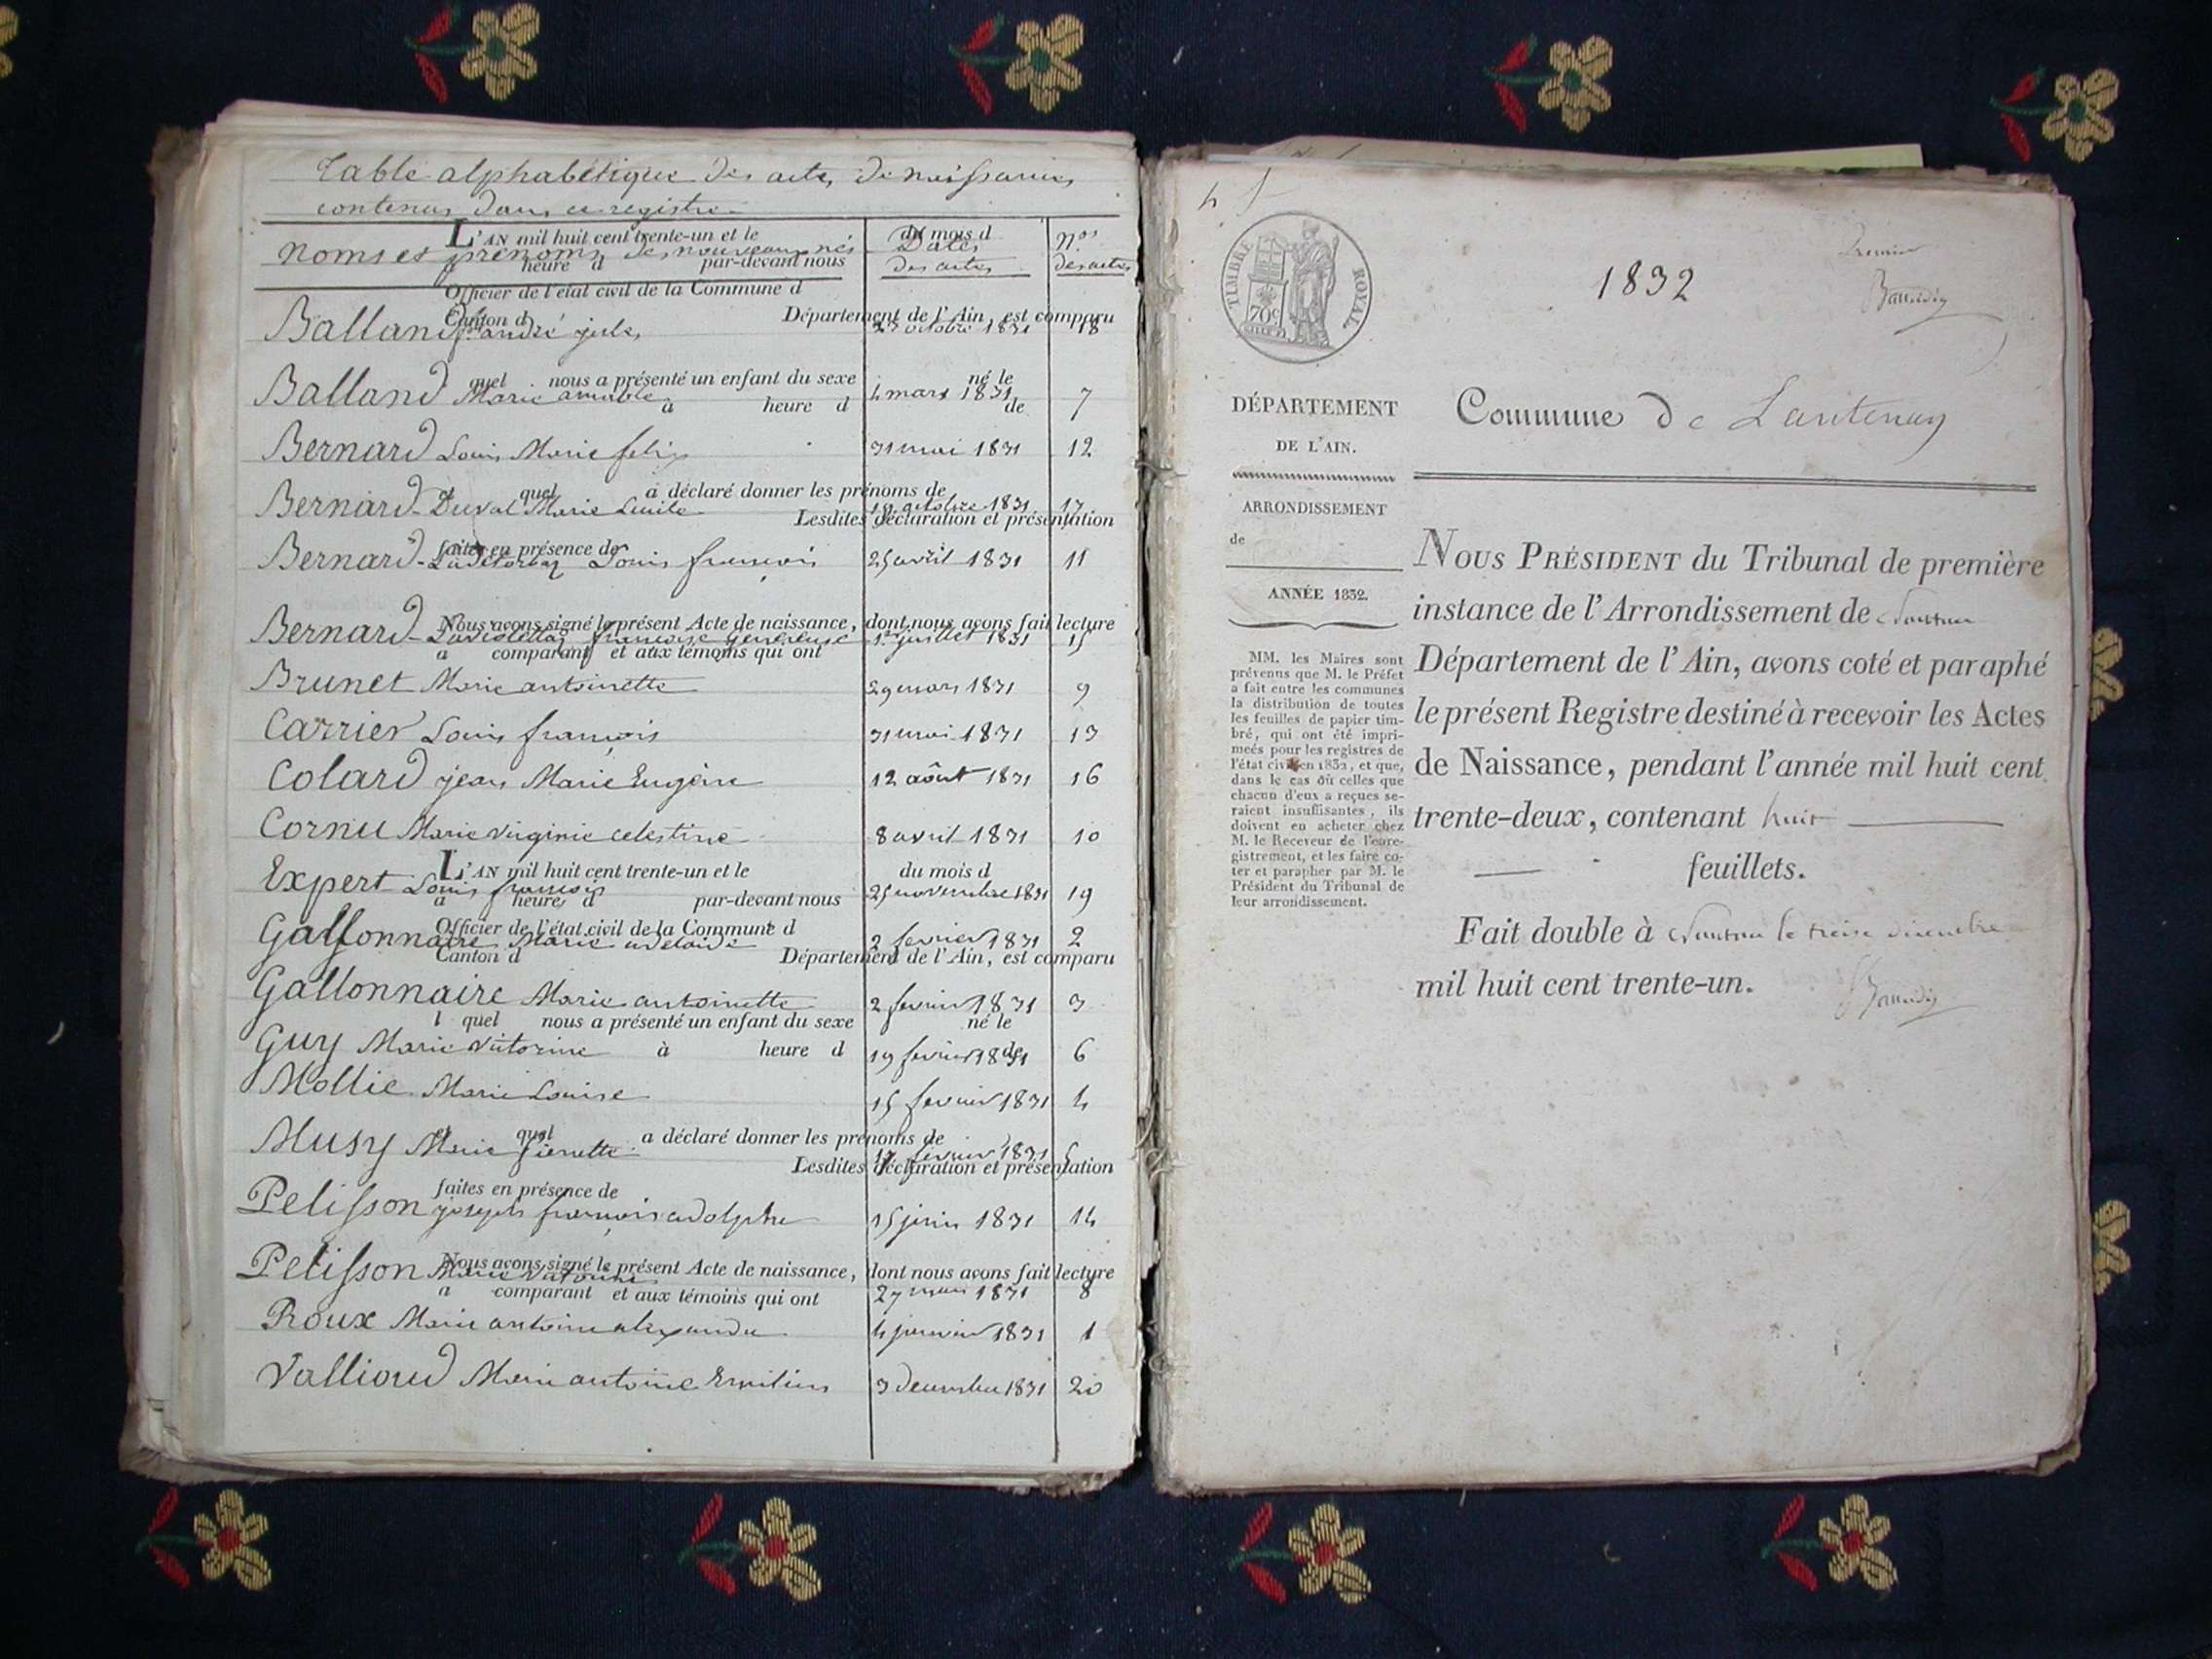 Table alphabétique des actes de naissances
contenus dans ce registre
L'AN mil huit cent trente-un et le du mois d
Noms et prénoms des nouveaux nés Dates Nos
à heure d par-devant nous des actes des actes
Officier de l'état civil de la Commune d
Canton d Département de l'Ain, est comparu
Balland andré jules 27 octobre 1831 18
quel nous a présenté un enfant du sexe né le
Balland Marie amable 4 mars 1831 7
à heure d de
Bernard Louis Marie felix 31 mai 1831 12
et quel a déclaré donner les prénoms de
Bernard-Duval Marie 19 octobre 1831 17
Lesdites déclaration et présentation
faites en présence de
Bernard- Louis françois 25 avril 1831 11
Nous avons signé le présent Acte de naissance, dont nous avons fait lecture
Bernard- françoise genereuse 1er juillet 1831 15
a comparant et aux témoins qui ont
Brunet Marie antoinette 29 mars 1831 9
Carrier Louis françois 31 mai 1831 13
Colard jean Marie Eugène 12 août 1831 16
Cornu Marie virginie celestine 8 avril 1831 10
L'AN mil huit cent trente-un et le du mois d
Expert Louis françois 25 novembre 1831 19
à heure d par-devant nous
Officier de l'état civil de la Commune d
Gallonnaire Marie adelaide 2 fevrier 1831 2
Canton d Département de l'Ain, est comparu
Gallonnaire Marie antoinette 2 fevrier 1831 3
l quel nous a présenté un enfant du sexe né le
Guy Marie victorine 19 fevrier 1831 6
à heure d de
Mollie Marie Louise 15 fevrier 1831 4
et quel a déclaré donner les prénoms de
Musy Marie pierrette 17 fevrier 1831 5
Lesdites déclaration et présentation
faites en présence de
Pelisson joseph françois adolphe 15 juin 1831 14
Nous avons signé le présent Acte de naissance, dont nous avons fait lecture
Pelisson Marie victorine 27 mars 1831 8
a comparant et aux témoins qui ont
Roux Marie antoine alexandre 4 janvier 1831 1
Vallioud Marie antoine Emilien 3 decembre 1831 20
TIMBRE ROYAL
70c
1832
Premier
Commune de Lantenay
DÉPARTEMENT
DE L'AIN.
ARRONDISSEMENT
de
ANNÉE 1832.
MM. les Maires sont
prévenus que M. le Préfet
a fait entre les communes
la distribution de toutes
les feuilles de papier tim-
bré, qui ont été impri-
meés pour les registres de
l'état civil en 1832, et que,
dans le cas où celles que
chacun d'eux a reçues se-
raient insuffisantes, ils
doivent en acheter chez
M. le Receveur de l'enre-
gistrement, et les faire co-
ter et parapher par M. le
Président du Tribunal de
leur arrondissement.
NOUS PRÉSIDENT du Tribunal de première
instance de l'Arrondissement de Nantua
Département de l'Ain, avons coté et paraphé
le présent Registre destiné à recevoir les Actes
de Naissance, pendant l'année mil huit cent
trente-deux, contenant huit
feuillets.
Fait double à Nantua le treize décembre
mil huit cent trente-un.